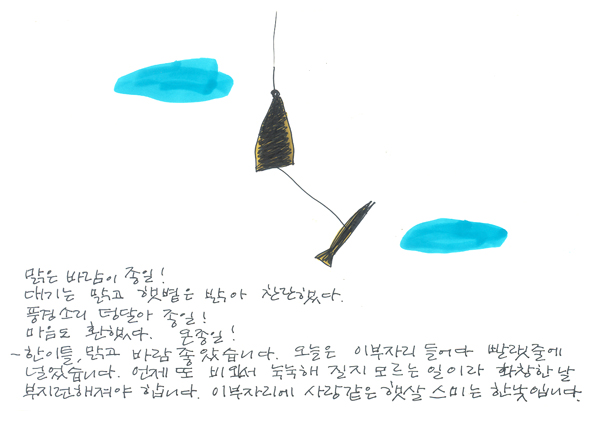 맑은 바람이 종일!
대기는 맑고 햇볕은 밝아 찬란했다.
풍경소리 덩달아 종일!
마음도 환했다. 온종일!
~한이틀, 맑고 바람 좋았습니다. 오늘은 이부자리 들어다 빨랫줄에
널었습니다. 언제 또 비와서 눅눅해 질지 모르는 일이라 화창한 날
부지런해져야 합니다. 이부자리에 사랑같은 햇살 스미는 한낮입니다.